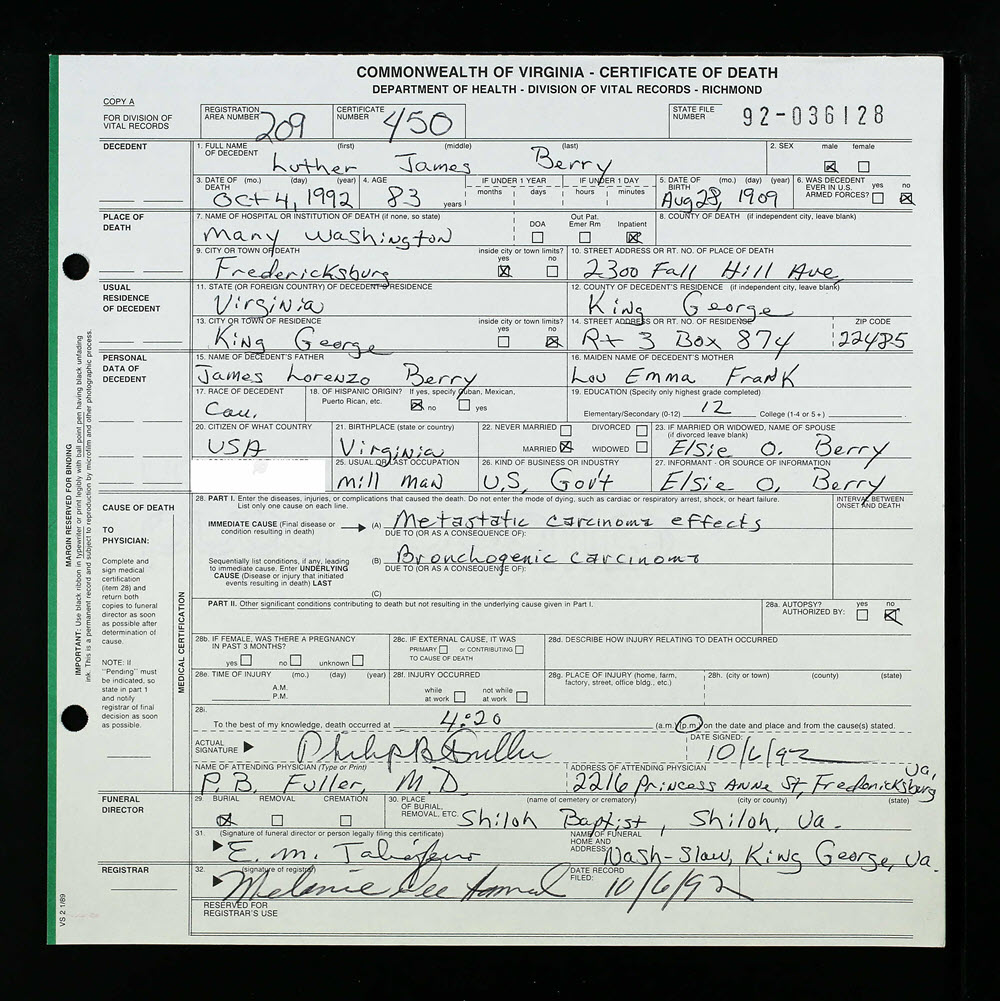 COMMONWEALTH OF VIRGINIA - CERTIFICATE OF DEATH
DEPARTMENT OF HEALTH - DIVISION OF VITAL RECORDS - RICHMOND
COPY A
FOR DIVISION OF VITAL RECORDS
REGISTRATION AREA NUMBER 209
CERTIFICATE NUMBER 450
STATE FILE NUMBER 92-036128
DECEDENT
1. FULL NAME OF DECEDENT (first) (middle) (last)
Luther James Berry
2. SEX male female
3. DATE OF DEATH (mo.) (day) (year)
Oct 4, 1992
4. AGE 83 years
IF UNDER 1 YEAR months days
IF UNDER 1 DAY hours minutes
5. DATE OF BIRTH (mo.) (day) (year)
Aug 28, 1909
6. WAS DECEDENT EVER IN U.S. ARMED FORCES? yes no
PLACE OF DEATH
7. NAME OF HOSPITAL OR INSTITUTION OF DEATH (if none, so state)
Mary Washington
DOA Out Pat. Emer Rm Inpatient
8. COUNTY OF DEATH (if independent city, leave blank)
9. CITY OR TOWN OF DEATH inside city or town limits? yes no
Fredericksburg
10. STREET ADDRESS OR RT. NO. OF PLACE OF DEATH
2300 Fall Hill Ave,
USUAL RESIDENCE OF DECEDENT
11. STATE (OR FOREIGN COUNTRY) OF DECEDENT'S RESIDENCE
Virginia
12. COUNTY OF DECEDENT'S RESIDENCE (if independent city, leave blank)
King George
13. CITY OR TOWN OF RESIDENCE inside city or town limits? yes no
King George
14. STREET ADDRESS OR RT. NO. OF RESIDENCE ZIP CODE
Rt 3 Box 874 22485
PERSONAL DATA OF DECEDENT
15. NAME OF DECEDENT'S FATHER
James Lorenzo Berry
16. MAIDEN NAME OF DECEDENT'S MOTHER
Lou Emma Frank
17. RACE OF DECEDENT
Cau.
18. OF HISPANIC ORIGIN? If yes, specify Cuban, Mexican, Puerto Rican, etc. no yes
19. EDUCATION (Specify only highest grade completed)
Elementary/Secondary (0-12) 12 College (1-4 or 5+)
20. CITIZEN OF WHAT COUNTRY
USA
21. BIRTHPLACE (state or country)
Virginia
22. NEVER MARRIED DIVORCED
MARRIED WIDOWED
23. IF MARRIED OR WIDOWED, NAME OF SPOUSE (if divorced leave blank)
Elsie O. Berry
25. USUAL OR LAST OCCUPATION
mill man
26. KIND OF BUSINESS OR INDUSTRY
U.S. Gov't
27. INFORMANT - OR SOURCE OF INFORMATION
Elsie O. Berry
CAUSE OF DEATH
TO PHYSICIAN:
Complete and sign medical certification (item 28) and return both copies to funeral director as soon as possible after determination of cause.
NOTE: If "Pending" must be indicated, so state in part 1 and notify registrar of final decision as soon as possible.
MEDICAL CERTIFICATION
28. PART I. Enter the diseases, injuries, or complications that caused the death. Do not enter the mode of dying, such as cardiac or respiratory arrest, shock, or heart failure.
List only one cause on each line.
INTERVAL BETWEEN ONSET AND DEATH
IMMEDIATE CAUSE (Final disease or condition resulting in death)
(A) Metastatic carcinoma effects
DUE TO (OR AS A CONSEQUENCE OF):
Sequentially list conditions, if any, leading to immediate cause. Enter UNDERLYING CAUSE (Disease or injury that initiated events resulting in death) LAST
(B) Bronchogenic carcinoma
DUE TO (OR AS A CONSEQUENCE OF):
(C)
PART II. Other significant conditions contributing to death but not resulting in the underlying cause given in Part I.
28a. AUTOPSY? AUTHORIZED BY: yes no
28b. IF FEMALE, WAS THERE A PREGNANCY IN PAST 3 MONTHS?
yes no unknown
28c. IF EXTERNAL CAUSE, IT WAS
PRIMARY or CONTRIBUTING
TO CAUSE OF DEATH
28d. DESCRIBE HOW INJURY RELATING TO DEATH OCCURRED
28e. TIME OF INJURY (mo.) (day) (year)
A.M.
P.M.
28f. INJURY OCCURRED
while at work not while at work
28g. PLACE OF INJURY (home, farm, factory, street, office bldg., etc.)
28h. (city or town) (county) (state)
28i.
To the best of my knowledge, death occurred at 4:20 (a.m.) (p.m.) on the date and place and from the cause(s) stated.
ACTUAL SIGNATURE Philip B Fuller
DATE SIGNED: 10/6/92
NAME OF ATTENDING PHYSICIAN (Type or Print)
P. B. Fuller, M.D.
ADDRESS OF ATTENDING PHYSICIAN
2216 Princess Anne St, Fredericksburg Va,
FUNERAL DIRECTOR
29. BURIAL REMOVAL CREMATION
30. PLACE OF BURIAL, REMOVAL, ETC. (name of cemetery or crematory) (city or county) (state)
Shiloh Baptist, Shiloh, Va.
31. (Signature of funeral director or person legally filing this certificate)
E. M.
NAME OF FUNERAL HOME AND ADDRESS:
Nash-Slaw, King George, Va.
REGISTRAR
32. (signature of registrar)
Melanie Lee
DATE RECORD FILED: 10/6/92
RESERVED FOR REGISTRAR'S USE
VS 2 1/89
MARGIN RESERVED FOR BINDING
IMPORTANT: Use black ribbon in typewriter or print legibly with ball point pen having black unfading ink. This is a permanent record and subject to reproduction by microfilm and other photographic process.